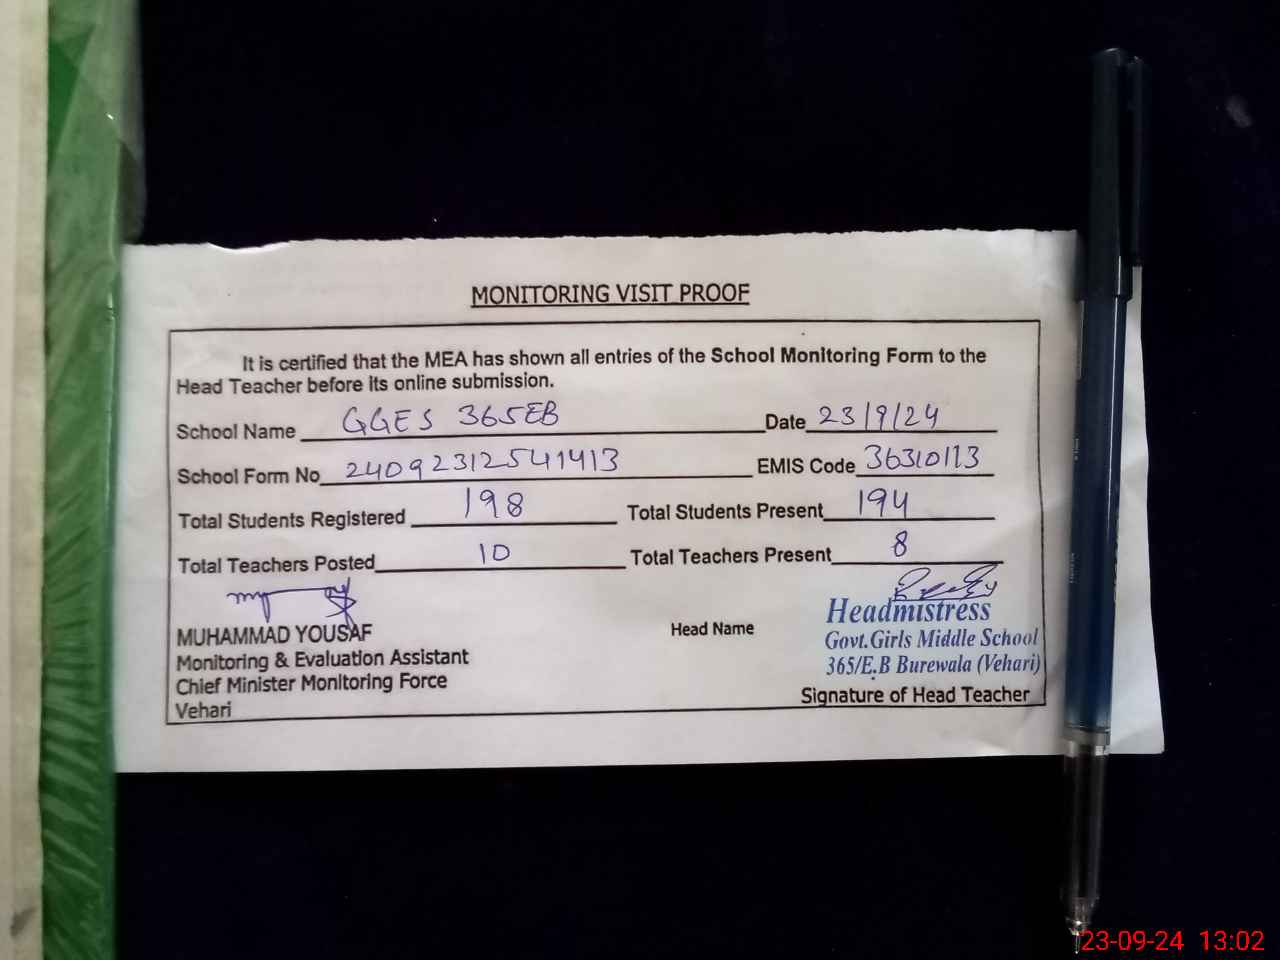 MONITORING VISIT PROOF
It is certified that the MEA has shown all entries of the School Monitoring Form to the
Head Teacher before its online submission.
School Name GGES 365EB Date 23/9/24
School Form No 24092312541413 EMIS Code 36310113
Total Students Registered 198 Total Students Present 194
Total Teachers Posted 10 Total Teachers Present 8
MUHAMMAD YOUSAF
Monitoring & Evaluation Assistant
Chief Minister Monitoring Force
Vehari
Head Name
Headmistress
Govt.Girls Middle School
365/E.B Burewala (Vehari)
Signature of Head Teacher
23-09-24 13:02